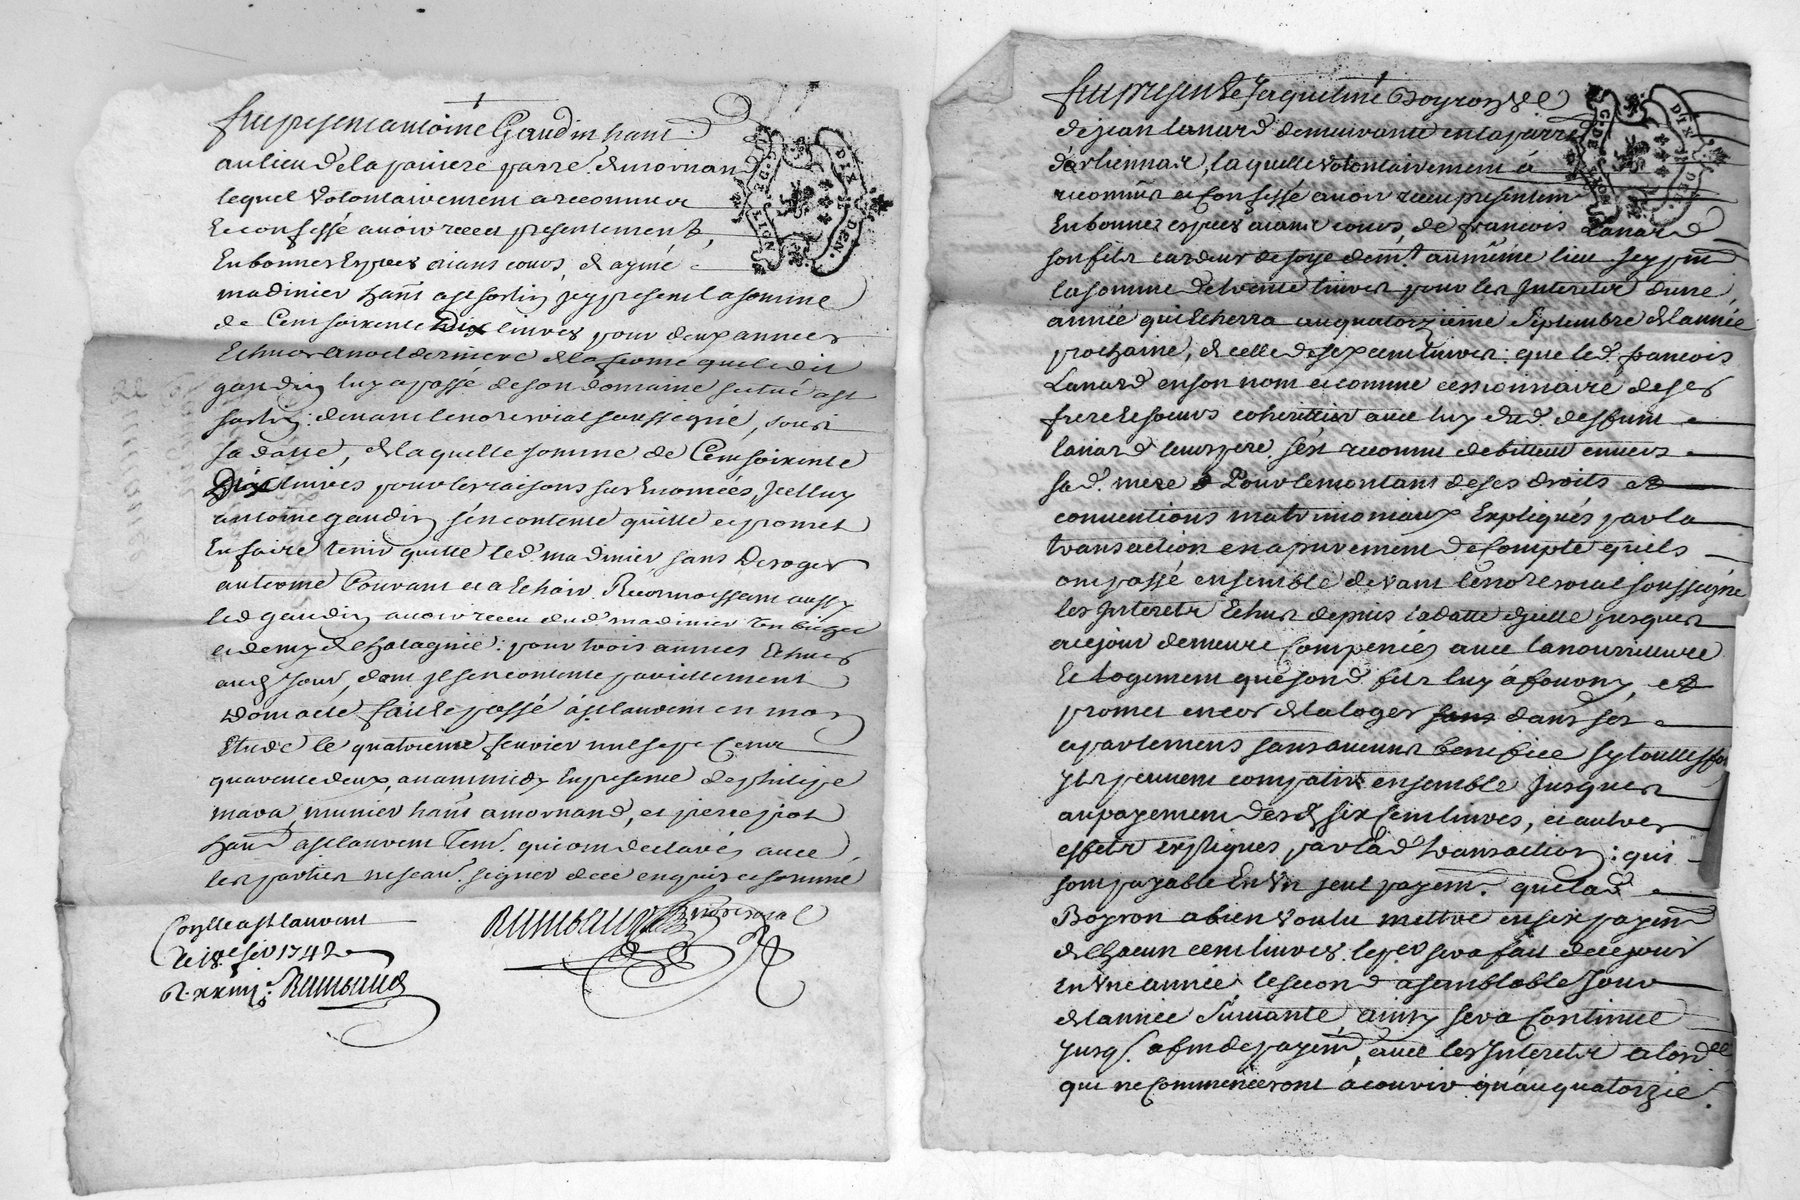 fut present antoine Gaudin hant
au lieu de la poiniere parre. de mornand
lequel Volontairement a reconnu et
Et confessé avoir receu presentement
En bonnes Espees aiant cours, de aymé
madinier hant a st sorlin jcy present la somme
de Cent soixente Dix livres pour deux annees
Echues a noel derniere de la ferme que ledit
gaudin luy a passé de son domaine scitué a st
sorlin: devant le no.re roial soussigné, sous
sa datte, de laquelle somme de Cent soixente
Dix livres pour les raisons sus Enoncées, Jcelluy
antoine gaudin s'en contente quitte et promet
En faire tenir quitte led. madinier, sans Deroger
au terme Courant et a Echoir. Reconnoissant aussy
led gaudin avoir receu dud. madinier
pour trois annees Echues
jour, dont Jl s'en contente pareillement
Dont acte fait et passé a st laurent en mon
Etude le quatrieme feuvrier mil sept Cent
quarente deux, avant midy En presence de philipe
mava, munier hant a mornand, et pierre piot
hant a st laurent tem. qui ont declarés avec
les parties ne scav. signer de ce enquis et sommé
Conlle a st laurent
le 18e fev 1742
R. xxiiij s
NOT. DE LYON G.
DIX DEN.
fut presente Jaqueline Boyron Ve
de jean Lanard demeurante en la parre
laquelle volontairement a
reconnu et Confessé avoir receu presentem
En bonnes espees aiant cours, de francois Lanard
son fils cardeur de soye dem.t au même lieu Jcy pnt
la somme de trente livres pour les Jnterets d'une
année qui Echerra au quatorzieme Septembre de l'année
prochaine, de celle de six cent livres: que led. francois
Lanard en son nom et comme cessionnaire de ses
frere et soeurs coheritiers avec luy dud. deffunt
lanard leur pere. s'est reconnu debitteur envers
sad. mere Pour le montant de ses droits et
conventions matrimoniaux Expliqués par la
transaction en apurement de Compte qu'ils
ont passé ensemble devant le no.re roial soussigné
les Jnterets Echus depuis la datte d'jcelle jusques
a ce jour demeuré Compencés avec la nourriture
Et Logement que sond. fils luy a fourny, et
promet encor de la loger dans ses
apartemens sans aucun benefice sy touttesfois
Jls peuvent compatir ensemble Jusques
au payement desd. six Cent livres, et autres
effets expliqués par lad. transaction: qui
sont payable En Un seul payem.t que lad.
Boyron a bien Voulu mettre en six payem
de Chacun cent livres. le per sera fait de ce jour
En Une année le second a semblable Jour
de l'année Suivante ainsy sera Continué
Jusq. a fin de payem, avec les Jnterets
qui ne Commenceront à courir qu'au quatorzie.